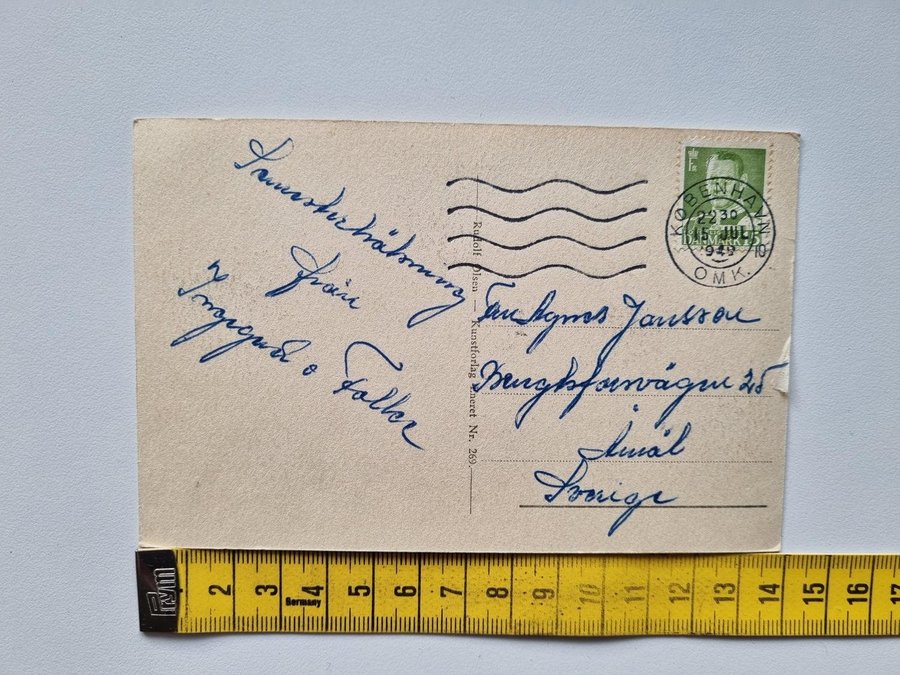 Semesterhälsning
från
Ingegerd o Folke
Rudolf Olsen — Kunstforlag Eneret Nr. 269.
KØBENHAVN
OMK.
2230
15 JUL
1949
10
DANMARK
Fru Agnes Jansson
Bengtsforsvägen 25
Åmål
Sverige
Prym
Germany
2 3 4 5 6 7 8 9 10 11 12 13 14 15 16 17